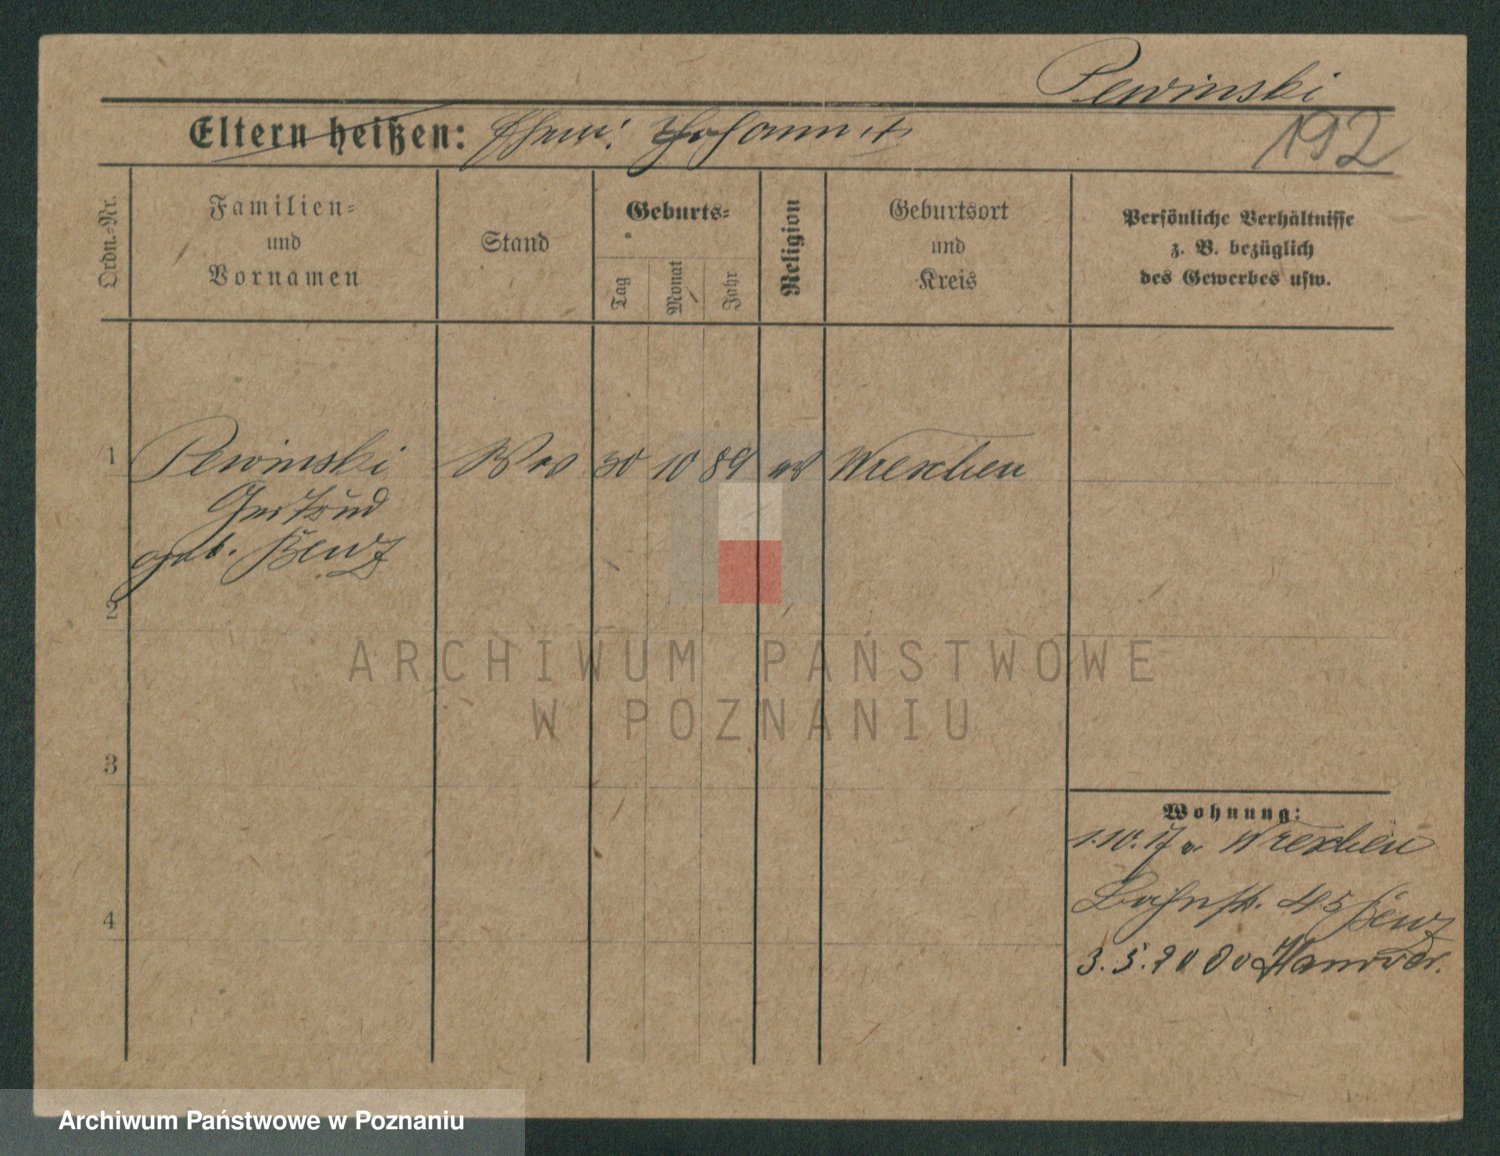 Pewinski
Eltern heißen: Ehem: Johann
192
Ordn.-Nr.
Familien-
und
Vornamen
Stand
Geburts-
Tag
Monat
Jahr
Religion
Geburtsort
und
Kreis
Persönliche Verhältnisse
z. B. bezüglich
des Gewerbes usw.
1
Pewinski
30
10
89
Wreschen
Gertrud
geb.
2
ARCHIWUM PAŃSTWOWE
W POZNANIU
3
Wohnung:
1.10.17 v. Wreschen
4
Bahnst. 45
3.5.20 Hannover.
Archiwum Państwowe w Poznaniu